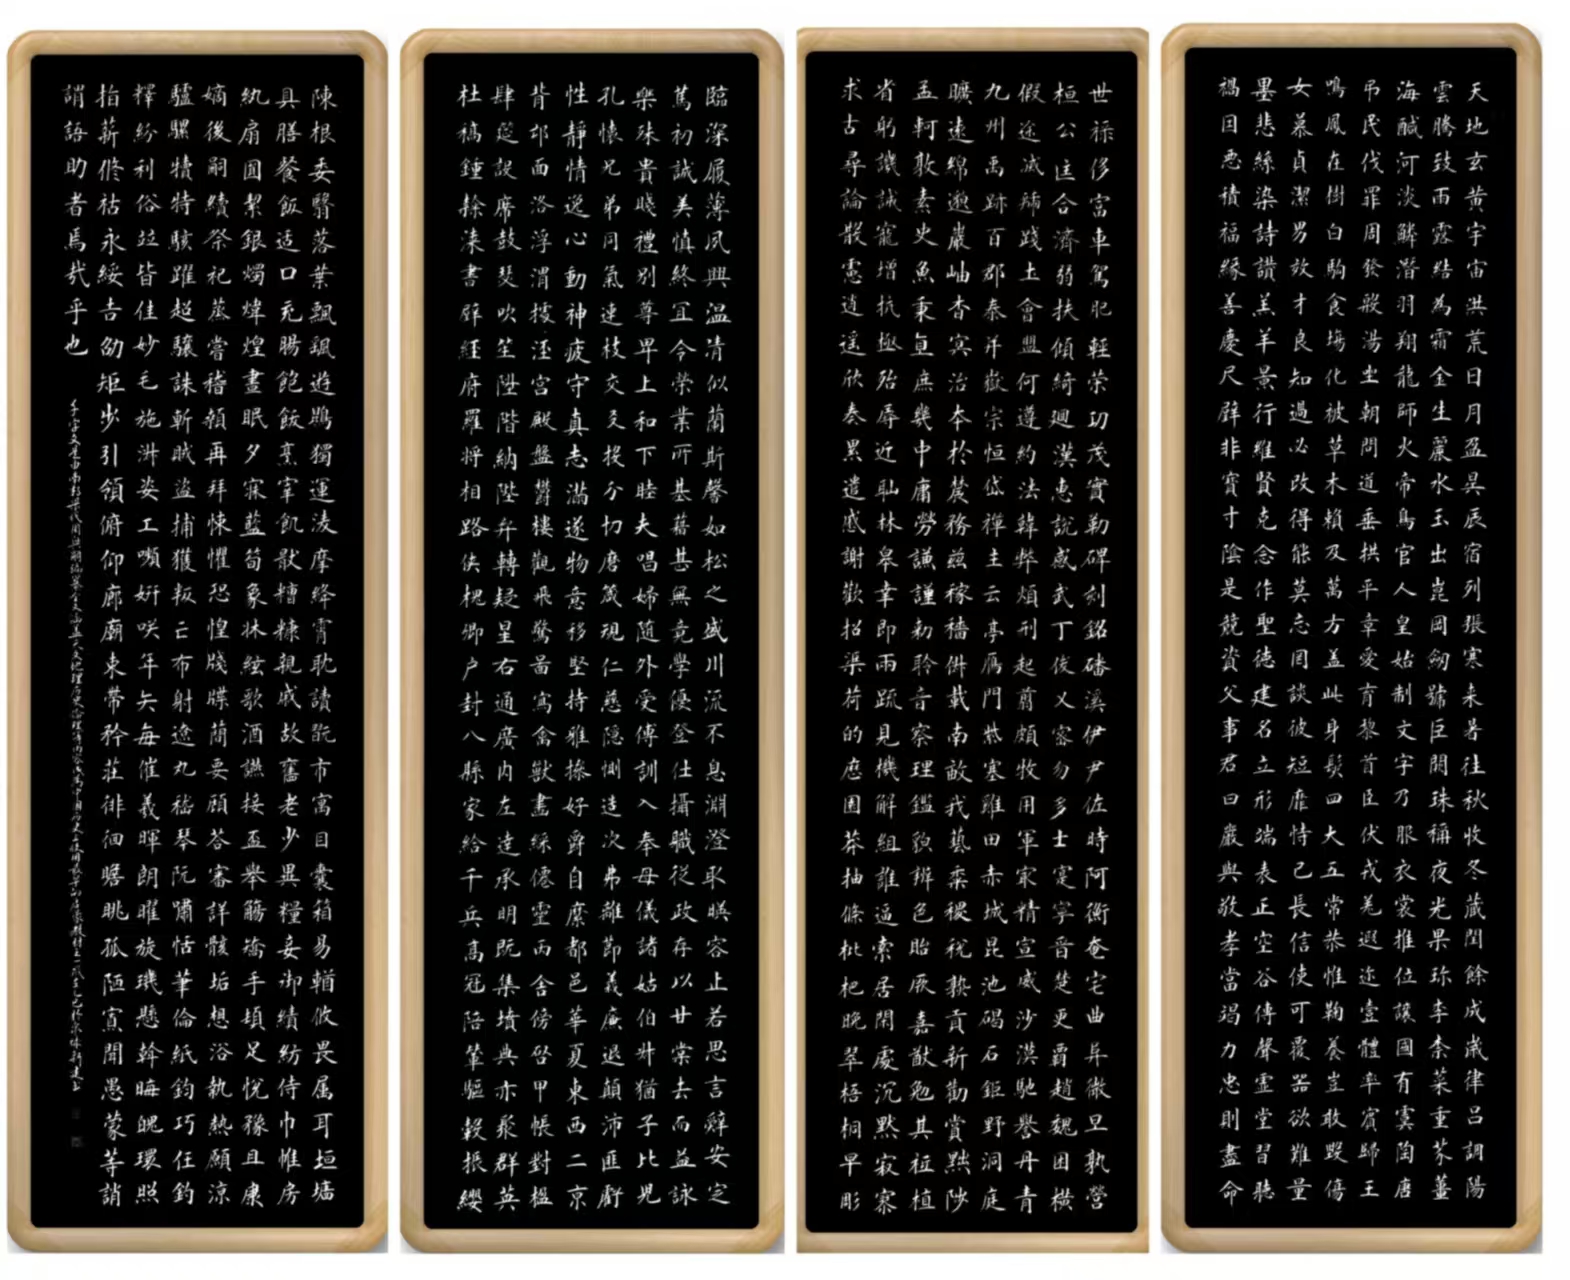 天地玄黃宇宙洪荒日月盈昃辰宿列張寒来暑往秋收冬蔵閏餘成歲律吕調陽
雲騰致雨露結為霜金生麗水玉出崑岡劒號巨闕珠稱夜光果珎李柰菜重芥薑
海醎河淡鱗潛羽翔龍師火帝鳥官人皇始制文字乃服衣裳推位讓國有虞陶唐
吊民伐罪周發殷湯坐朝問道垂拱平章愛育黎首臣伏戎羌遐迩壹體率賓歸王
鳴鳳在樹白駒食場化被草木賴及萬方盖此身髮四大五常恭惟鞠養豈敢毀傷
女慕貞潔男效才良知過必改得能莫忘罔談彼短靡恃己長信使可覆器欲難量
墨悲絲染詩讚羔羊景行維賢克念作聖德建名立形端表正空谷傳聲虛堂習聽
禍因惡積福緣善慶尺璧非寶寸陰是競資父事君曰嚴與敬孝當竭力忠則盡命
世祿侈富車駕肥輕榮功茂實勒碑刻銘磻溪伊尹佐時阿衡奄宅曲阜微旦孰營
桓公匡合濟弱扶傾綺迴漢惠說感武丁俊乂密勿多士寔寧晉楚更霸趙魏困橫
假途滅虢踐土會盟何遵約法韓弊煩刑起翦頗牧用軍冣精宣威沙漠馳譽丹青
九州禹跡百郡秦并嶽宗恒岱禪主云亭鴈門紫塞雞田赤城昆池碣石鉅野洞庭
曠遠綿邈巖岫杳冥治本於農務茲稼穡俶載南畝我藝黍稷稅熟貢新勸賞黜陟
孟軻敦素史魚秉直庶幾中庸勞謙謹勅聆音察理鑑貌辨色貽厥嘉猷勉其祗植
省躬譏誡寵增抗極殆辱近恥林皋幸即兩疏見機解組誰逼索居閑處沉默寂寥
求古尋論散慮逍遙欣奏累遣慼謝歡招渠荷的歷園莽抽條枇杷晚翠梧桐早彫
臨深履薄夙興温凊似蘭斯馨如松之盛川流不息淵澄取暎容止若思言辭安定
篤初誠美慎終宜令榮業所基藉甚無竟學優登仕攝職從政存以甘棠去而益詠
樂殊貴賤禮別尊卑上和下睦夫唱婦隨外受傅訓入奉母儀諸姑伯叔猶子比兒
孔懷兄弟同氣連枝交友投分切磨箴規仁慈隱惻造次弗離節義廉退顛沛匪虧
性靜情逸心動神疲守真志滿逐物意移堅持雅操好爵自縻都邑華夏東西二京
背邙面洛浮渭據涇宮殿盤鬱樓觀飛驚圖寫禽獸畫綵僊靈丙舍傍啓甲帳對楹
肆筵設席鼓瑟吹笙陞階納陛弁轉疑星右通廣內左達承明既集墳典亦聚群英
杜稿鍾隸漆書壁經府羅將相路俠槐卿户封八縣家給千兵高冠陪輦驅轂振纓
陳根委翳落葉飄颻遊鵾獨運凌摩絳霄耽讀翫市寓目囊箱易輶攸畏属耳垣墻
具膳餐飯適口充腸飽飫烹宰飢猒糟糠親戚故舊老少異糧妾御績紡侍巾帷房
紈扇圓絜銀燭煒煌晝眠夕寐藍筍象牀絃歌酒讌接盃舉觴矯手頓足悅豫且康
嫡後嗣續祭祀蒸嘗稽顙再拜悚懼恐惶牋牒簡要顧答審詳骸垢想浴執熱願涼
驢騾犢特駭躍超驤誅斬賊盜捕獲叛亡布射遼丸嵇琴阮嘯恬筆倫紙鈞巧任釣
釋紛利俗竝皆佳妙毛施淑姿工顰妍咲年矢每催羲暉朗曜旋璣懸斡晦魄環照
指薪修祜永綏吉劭矩步引領俯仰廊廟束帶矜莊徘徊瞻眺孤陋寡聞愚蒙等誚
謂語助者焉哉乎也